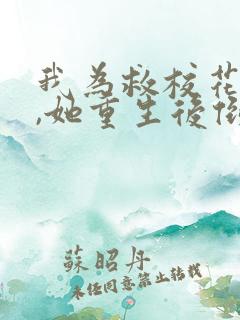 我為救校花
,她重生後
蘇昭丹
未经同意禁止转载